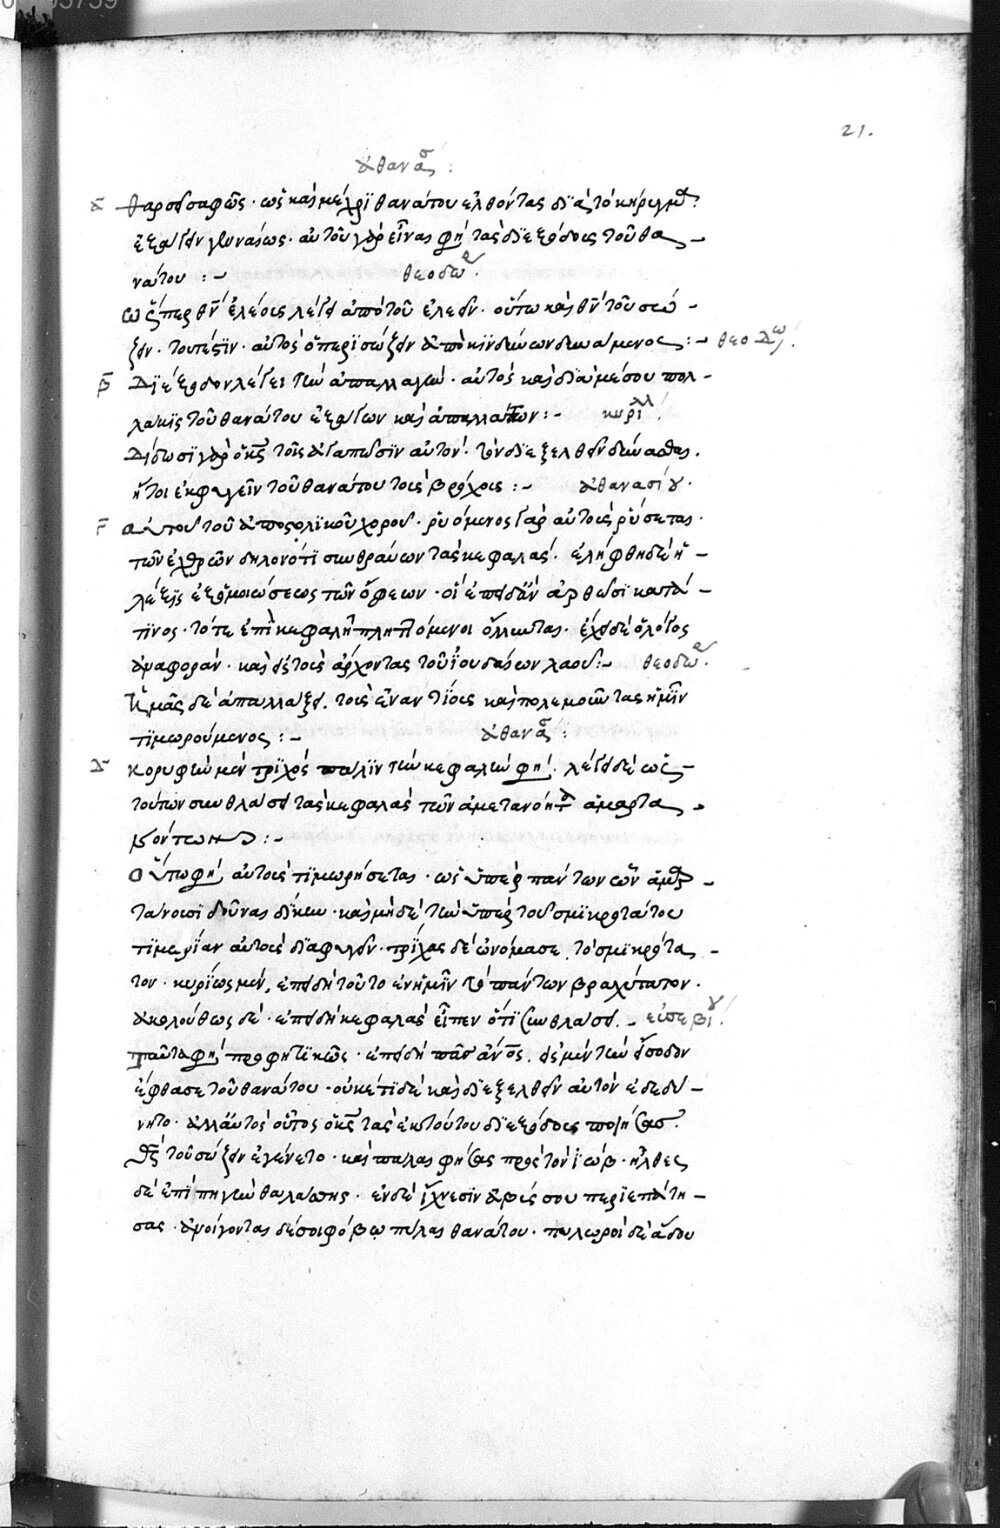 21.
ἀθανασ :
α θάρσος σαφῶς · ὡς καὶ μέχρι θανάτου ἐλθόντας διὰ τὸ κήρυγμα
ἐξάγειν γενναίως · αὐτοῦ γὰρ εἶναι φη τὰς διεξόδους τοῦ θα
νάτου : - θεοδω
ὥσπερ θν ἐλέους λέγει ἀπὸ τοῦ ἐλεεῖν · οὕτω καὶ θν τοῦ σώ
ζειν · τουτέστιν · αὐτὸς ὁ περισώζειν ἀπὸ κινδύνων δυνάμενος : - θεοδω
β Διέξοδον λέγει τὴν ἀπαλλαγήν · αὐτὸς καὶ διὰ μέσου πολ
λάκις τοῦ θανάτου ἐξάγων καὶ ἀπαλλάττων : - κυριλλ
Δίδωσι γὰρ ὁ κς τοῖς ἀγαπῶσιν αὐτόν · τὸν διεξελθεῖν δύνασθαι ·
ἤτοι ἐκφυγεῖν τοῦ θανάτου τοὺς βρόχους : - ἀθανασίου ·
γ αὐτοῦ τοῦ ἀποστολικοῦ χοροῦ · ῥυόμενος γὰρ αὐτοὺς ῥύσεται ·
τῶν ἐχθρῶν δηλονότι συνθραύων τὰς κεφαλάς · ἐλήφθη δὲ ἡ
λέξις ἐξ ὁμοιώσεως τῶν ὄφεων · οἳ ἐπειδὰν ἀρθῶσι κατά
τινος · τότε ἐπὶ κεφαλὴν πληττόμενοι ὄλλυνται · ἔχει δὲ ὁ λόγος
ἀναφοράν · καὶ εἰς τοὺς ἄρχοντας τοῦ ἰουδαίων λαοῦ : - θεοδω
ἡμᾶς δὲ ἀπαλλάξει · τοὺς ἐναντίους καὶ πολεμοῦντας ἡμῖν
τιμωρούμενος : - ἀθανασ :
Δ κορυφὴν μὲν τριχὸς πάλιν τὴν κεφαλήν φη · λέγει δὲ ὡς
τούτων συνθλάσει τὰς κεφαλὰς τῶν ἀμετανοήτ ἁμαρτα
νόντων : -
οὕτω φη αὐτοὺς τιμωρήσεται · ὡς ὑπὲρ πάντων ὧν ἁμαρ
τάνουσι δοῦναι δίκην · καὶ μηδὲ τὴν ὑπὲρ τοῦ σμικροτάτου
τιμωρίαν αὐτοὺς διαφυγεῖν · τρίχας δὲ ὠνόμασε τὸ σμικρότα
τον · κυρίως μέν, ἐπειδὴ τοῦτο ἐν ἡμῖν τὸ πάντων βραχύτατον ·
ἀκολούθως δὲ · ἐπειδὴ κεφαλὰς εἶπεν ὅτι συνθλάσει · - εὐσεβίου
ταῦτα φη προφητικῶς · ἐπειδὴ πᾶς ανος · εἰς μὲν τὴν εἴσοδον
ἔφθασε τοῦ θανάτου · οὐκέτι δὲ καὶ διεξελθεῖν αὐτὸν ἐδεδύ
νητο · ἀλλ' αὐτὸς οὗτος ὁ κς τὰς ἐκ τούτου διεξόδους ποιήσας ·
θς τοῦ σώζειν ἐγένετο · καὶ πάλαι φήσας πρὸς τὸν ἰώβ · ἦλθες
δὲ ἐπὶ πηγὴν θαλάσσης · ἐν δὲ ἴχνεσιν ἀβύσσου περιεπάτη
σας · ἀνοίγονται δέ σοι φόβῳ πύλαι θανάτου · πυλωροὶ δὲ ἅδου